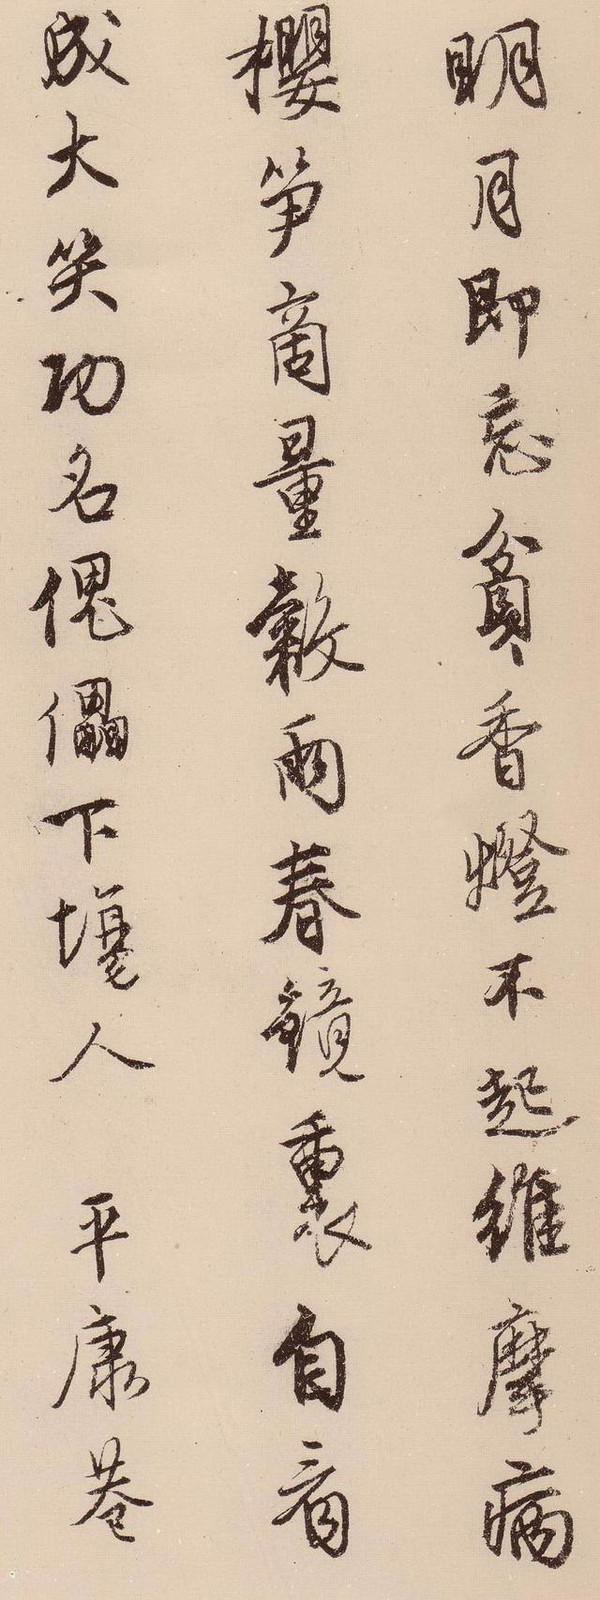 明月即忘貧香燈不起維摩病
櫻筍商量穀雨春鏡裏自看
成大笑功名傀儡下場人 平康巷